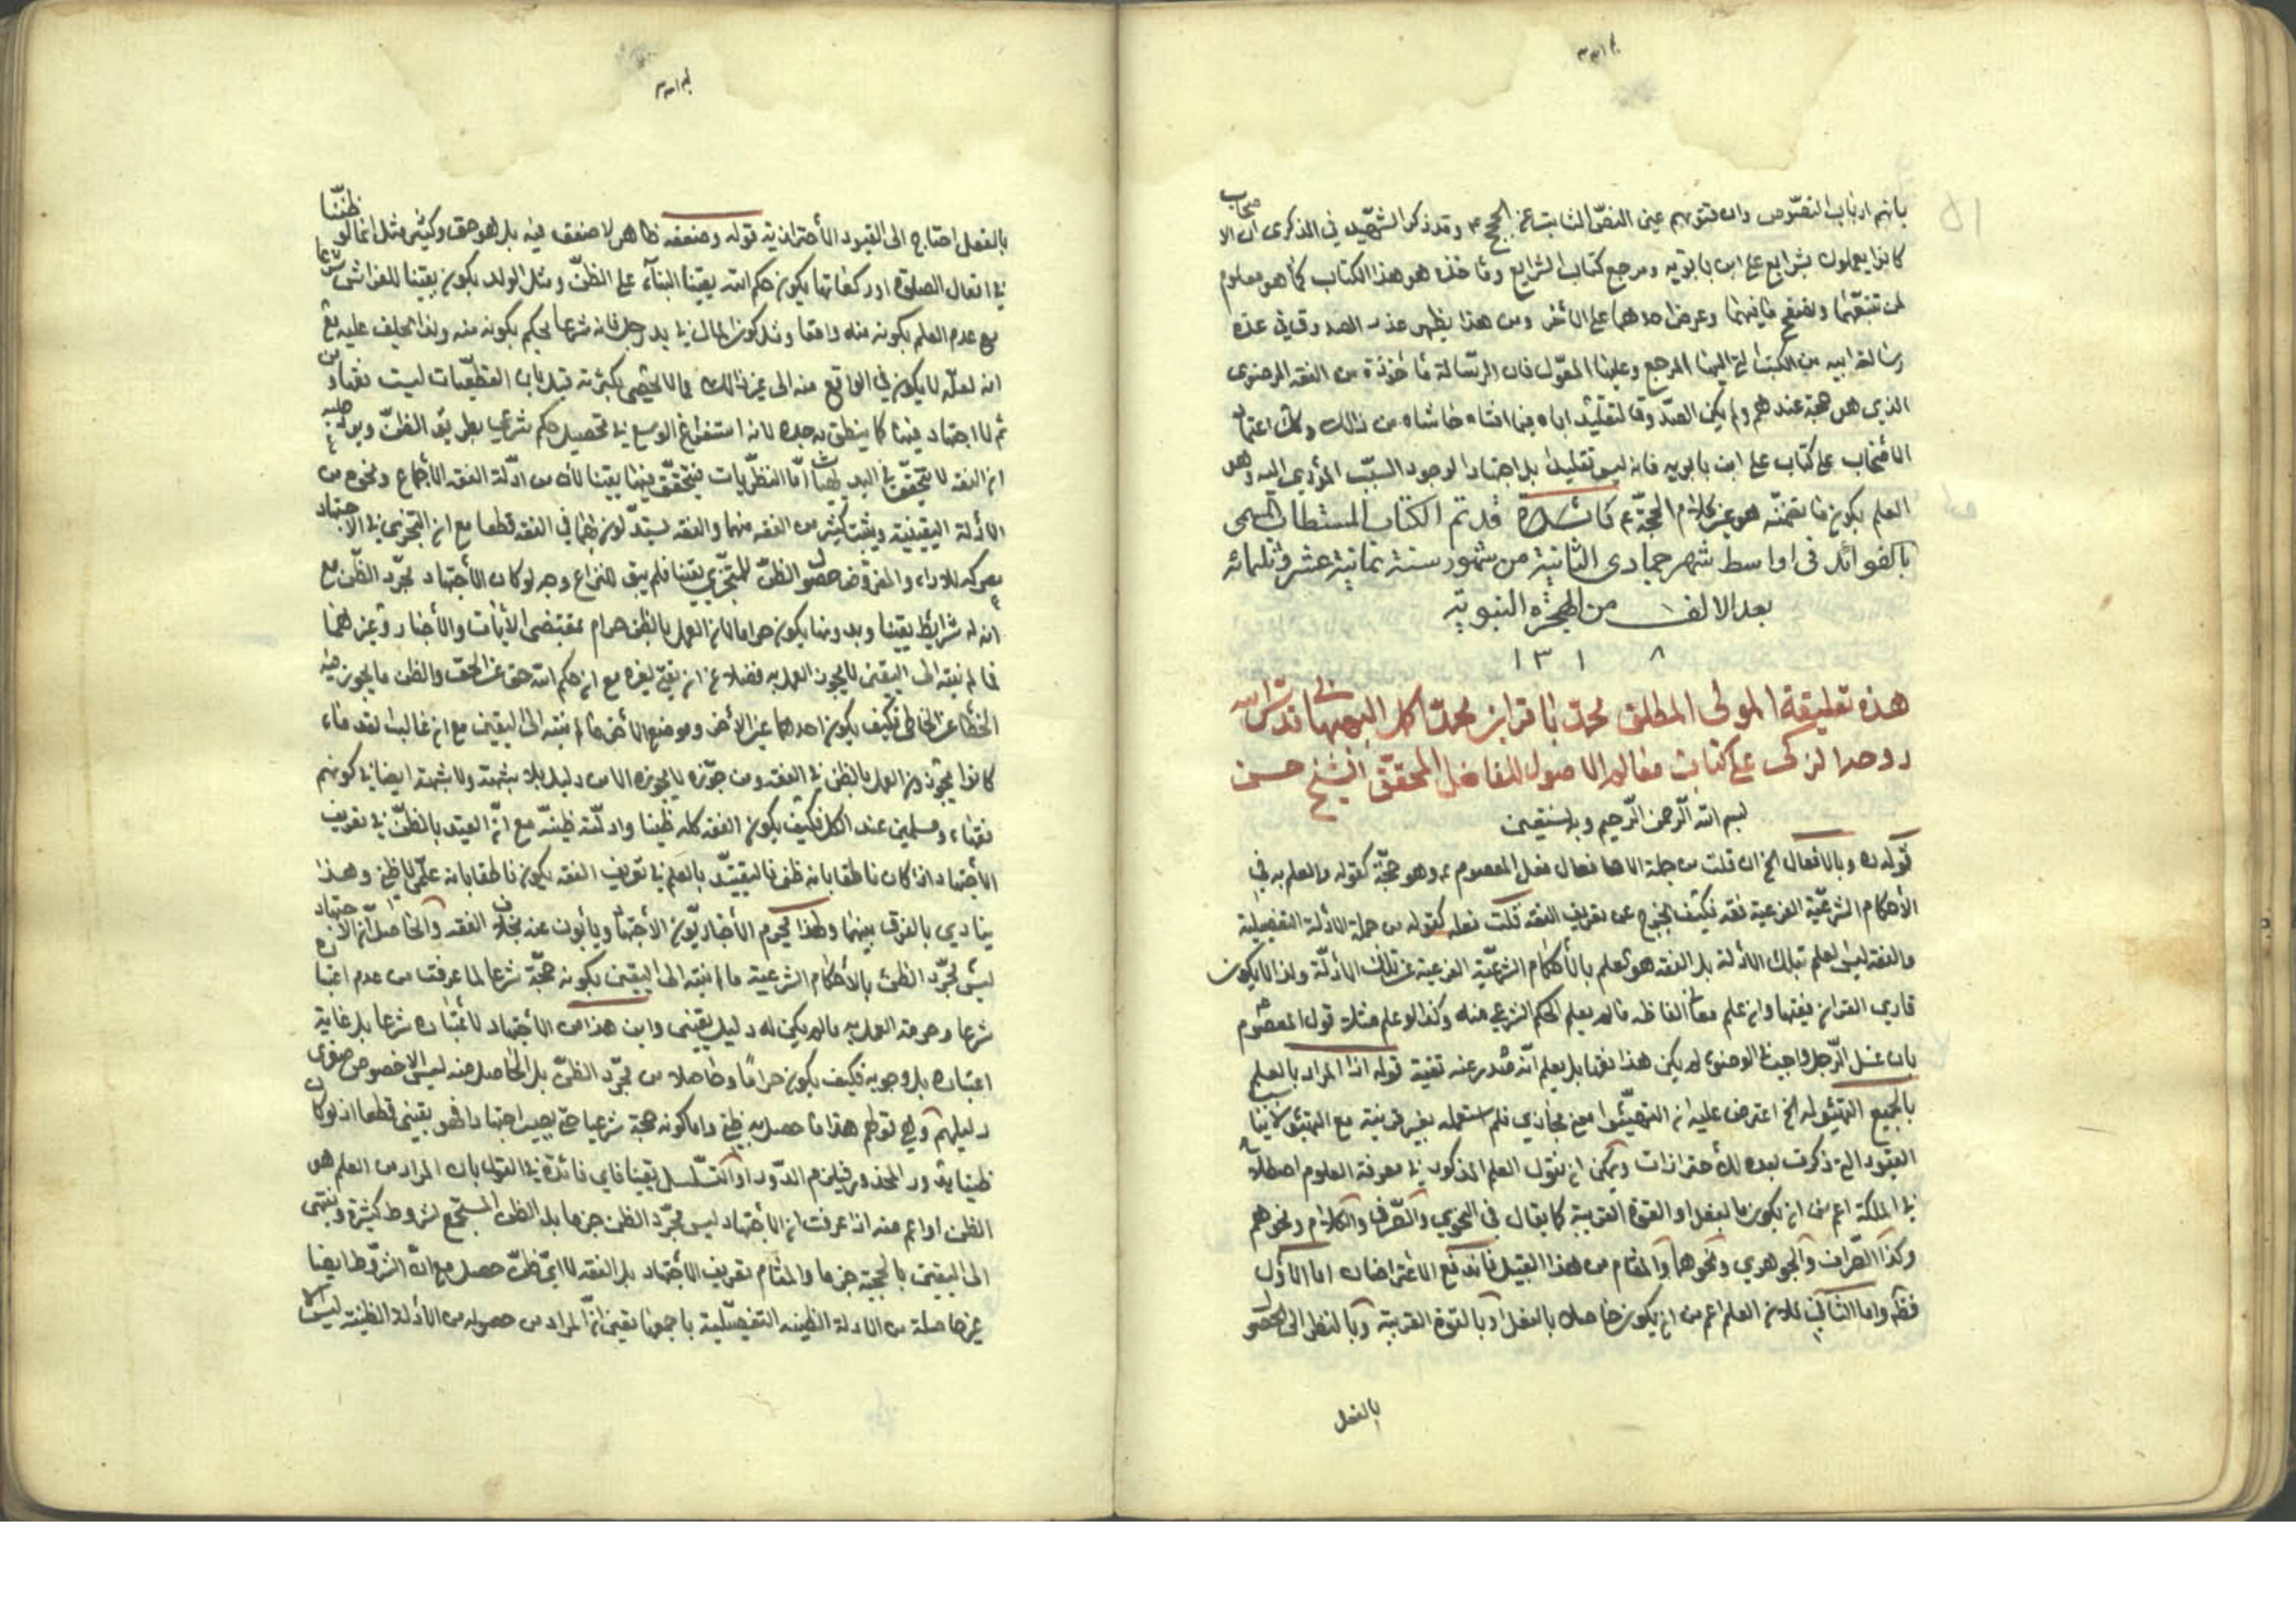 بانهم ارباب النصوص وان فتويهم عين النص الثابت عن الحجج ع وقد ذكر الشهيد في الذكرى ان الاصحاب
كانوا يعملون بشرايع علي ابن بابويه ومرجع كتاب الشرايع وماخذه هو هذا الكتاب كما هو معلوم
لمن تتبعهما وتصفح ما فيهما وعرض احدهما على الاخر ومن هذا يظهر عذر الصدوق في عده
رسالة ابيه من الكتب التي اليها المرجع وعليها المعول فان الرسالة ماخوذة من الفقه الرضوي
الذي هو حجة عندهم ولم يكن الصدوق ليقلد اباه فيما افتاه حاشاه من ذلك وكذلك اعتماد
الاصحاب على كتاب علي ابن بابويه فانه ليس تقليدا بل اعتمادا لوجود السبب المؤدي اليه وهو
العلم بكون ما تضمنه هو عين كلام الحجة ع قد تم الكتاب المستطاب المسمى
بالفوائد في اواسط شهر جمادى الثانية من شهور سنة ثمانية عشر وثلمائه
بعد الالف من الهجره النبوية
١٣١٨
هذه تعليقة المولى المطلق محمد باقر ابن محمد اكمل البهبهاني قدس الله
روحه الزكى على كتاب معالم الاصول للفاضل المحقق الشيخ حسن
بسم الله الرحمن الرحيم وبه نستعين
قوله ره وبالافعال الخ ان قلت من جملة الافعال فعل المعصوم ع وهو حجة كقوله والعلم به في
الأحكام الشرعية الفرعية فقه فكيف يخرج عن تعريف الفقه قلت فعله كقوله من جملة الادلة التفصيلية
والفقه ليس العلم بتلك الأدلة بل الفقه هو العلم بالأحكام الشرعية الفرعية عن تلك الأدلة ولذا لا يكون
قاري القران فقيها وان علم معاني الفاظه ما لم يعلم الحكم الشرعي منه وكذا لو علم مثلا قول المعصوم
بان غسل الرجل واجب في الوضوء لم يكن هذا فقها بل يعلم انه صدر عنه تقية قوله اذا المراد بالعلم
بالجميع التهيؤ له الخ اعترض عليه ان التهيؤ معنى مجازي فلم استعمله بغير قرينة مع التهيؤ
القيود التي ذكرت بعده للأحترازات ويمكن ان نقول العلم المذكور في معرفة العلوم اصطلاحا
في الملكة اعم من ان يكون بالفعل او القوة القريبة كما يقال في النحوي والصرفي والكلام ونحوهم
وكذا الصراف والجوهري ونحوهما والمقام من هذا القبيل فاندفع الاعتراضان اما الاول
فظ واما الثاني فلان العلم اعم من ان يكون حاصلا بالفعل او بالقوة القريبة وبالنظر الى الحصول
بالفعل
بالفعل احتاج الى القيود الأحترازية قوله وضعفه ظاهر لا ضعف فيه بل هو حق وكثير مثل انه لو ظننا
في افعال الصلوة او ركعاتها يكون حكم الله يقينا البناء على الظن ومثل الولد يكون يقينا للفراش شرعا
مع عدم العلم بكونه منه واقعا ومثل كون المال في يد رجل فانه شرعا يحكم بكونه منه ولذا يحلف عليه مع
انه لعله لا يكون في الواقع منه الى غير ذلك مما لا يحصى بكثرته
ثم لا اجتهاد فيها كما ينطق به حده لانه استفراغ الوسع في تحصيل حكم شرعي بطريق الظن
ان الفقه لا يتحقق في البديهيات اما النظريات فيتحقق فيها يقينا لأن من ادلة الفقه الأجماع ونحوه من
الأدلة اليقينية ويثبت كثير من الفقه منها والفقه يستدلون بها في الفقه قطعا مع ان التجزي في الاجتهاد
معركة للاراء والمفروض حصول الظن للمتجزي يقينا فلم يبق للنزاع وجه لو كان الأجتهاد مجرد الظن مع
انه له شرايط يقينا وبدونها يكون حراما لان العمل بالظن حرام بمقتضى الأيات والأخبار وغيرهما
فما لم ينته الى اليقين لا يجوز العمل به فضلا عن ان يفتي لغيره مع ان حكم الله حق عن الحق والظن ما يجوز فيه
الخطا عن الخاطي فكيف يكون احدهما عين الأخر وموضع الأخر ما لم ينته الى اليقين مع ان غالب القدماء
كانوا يجوزون العمل بالظن في الفقه ومن جوزه لا يجوزه الا من دليل بلا شبهة ولا شبهة ايضا في كونهم
فقهاء ومسلمين عند الكل فكيف يكون الفقه كله ظنيا وادلته ظنية مع ان القيد بالظن في تعريف
الأجتهاد اذا كان ناطقا بانه ظني فالتقييد بالعلم في تعريف الفقه يكون ناطقا بانه علمي لا ظني وهذا
ينادي بالفرق بينهما ولهذا يحرم الأخباريون الأجتهاد ويأبون عنه بخلاف الفقه والحاصل ان الاجتهاد
ليس مجرد الظن بالأحكام الشرعية ما لم ينته الى اليقين بكونه حجة شرعا لما عرفت من عدم اعتباره
شرعا وحرمة العمل به ما لم يكن له دليل يقيني واين هذا من الأجتهاد لأعتباره شرعا بل غاية
اعتباره بل وجوبه فكيف يكون حراما وحاصلا من مجرد الظن بل الحاصل منه ليس الا خصوص صغرى
دليلهم وهي قولهم هذا ما حصل به ظني واما كونه حجة شرعيا حتى يصير اجتهادا فهو يقيني قطعا اذ لو كان
ظنيا يدور المحذور فيلزم الدور او التسلسل يقينا فاي فائدة في القول بان المراد من العلم هو
الظن او اعم منه اذا عرفت ان الأجتهاد ليس مجرد الظن جزما بل الظن المستجمع لشروط كثيرة وينتهى
الى اليقين بالحجية جزما والمقام تعريف الأجتهاد بل الفقه لا اي ظن حصل مع ان الشروط ايضا
غير حاصلة من الادلة الظنية التفصيلية باجمعها يقين ان المراد من حصوله من الأدلة الظنية ليس الا